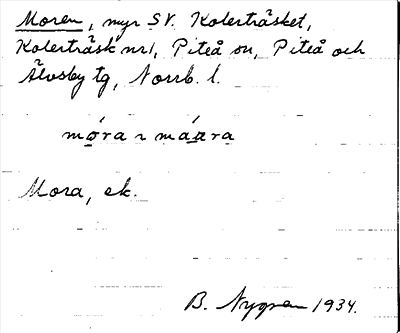 Moren, myr SV. Kolerträsket,
Kolerträsk nr 1, Piteå sn, Piteå och
Älvsby tg, Norrb. l.
móra ~ máara
Mora, ek.
B. Nygren 1934.